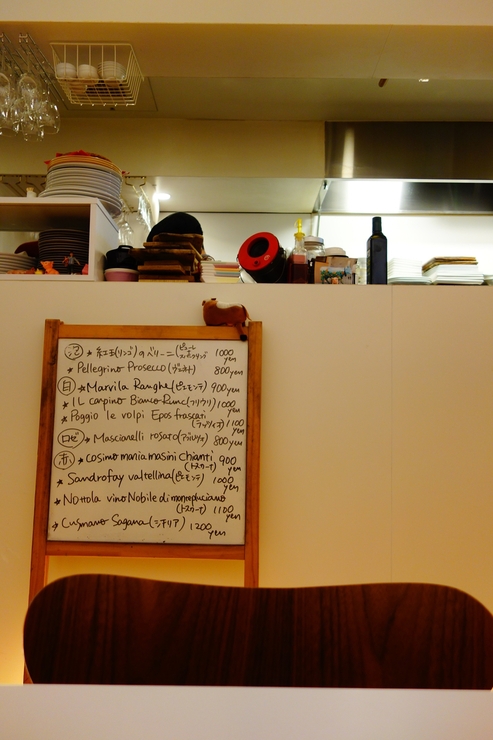 泡 * 紅玉(リンゴ)のベリーニ(ピュール スパークリング 1000 yen
* Pellegrino Prosecco (ヴェネト) 800 yen
白 * Marvila Ranghe (ピエモンテ) 900 yen
* IL carpino Bianco Runc (フリウリ) 1000 yen
* Poggio le volpi Epos frascati (ラツィオ) 1100 yen
ロゼ * Masciarelli rosato (アブルッツォ) 800 yen
赤 * cosimo maria masini chianti (トスカーナ) 900 yen
* Sandrofay valtellina (ピエモンテ) 1000 yen
* Nottola vino Nobile di montepulciano (トスカーナ) 1100 yen
* Cusmano Sagana (シチリア) 1200 yen